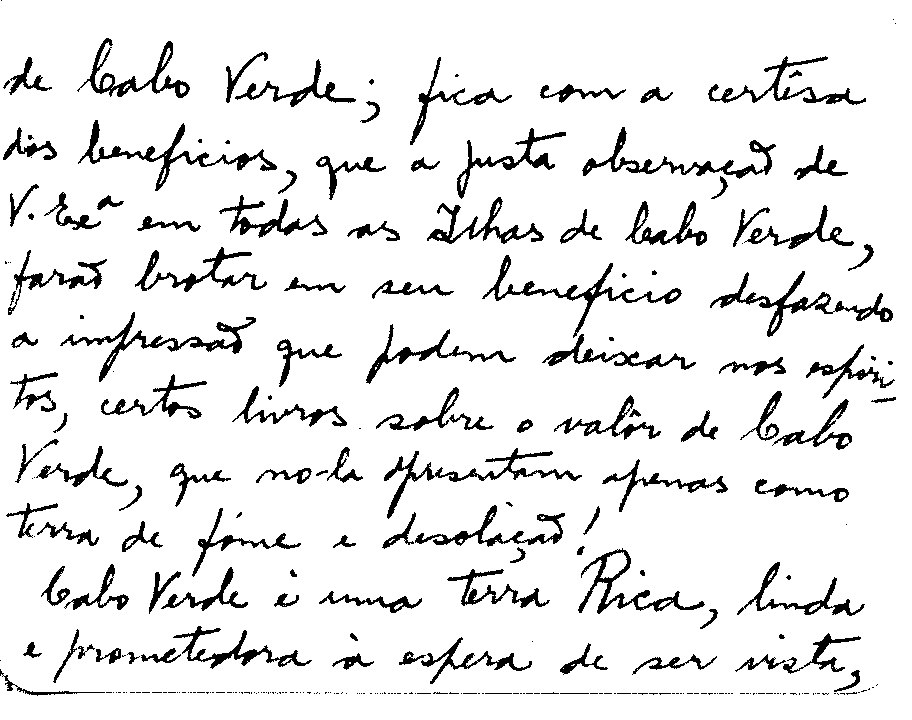 de Cabo Verde; fica com a certêsa
dos beneficios, que a justa observação de
V. Exª em todas as Ilhas de Cabo Verde,
farão brotar em seu beneficio desfazendo
a impressão que podem deixar nos espiri-
tos, certos livros sobre o valôr de Cabo
Verde, que no-la apresentam apenas como
terra de fóme e desolação!
Cabo Verde é uma terra Rica, linda
e prometedora à espera de ser vista,